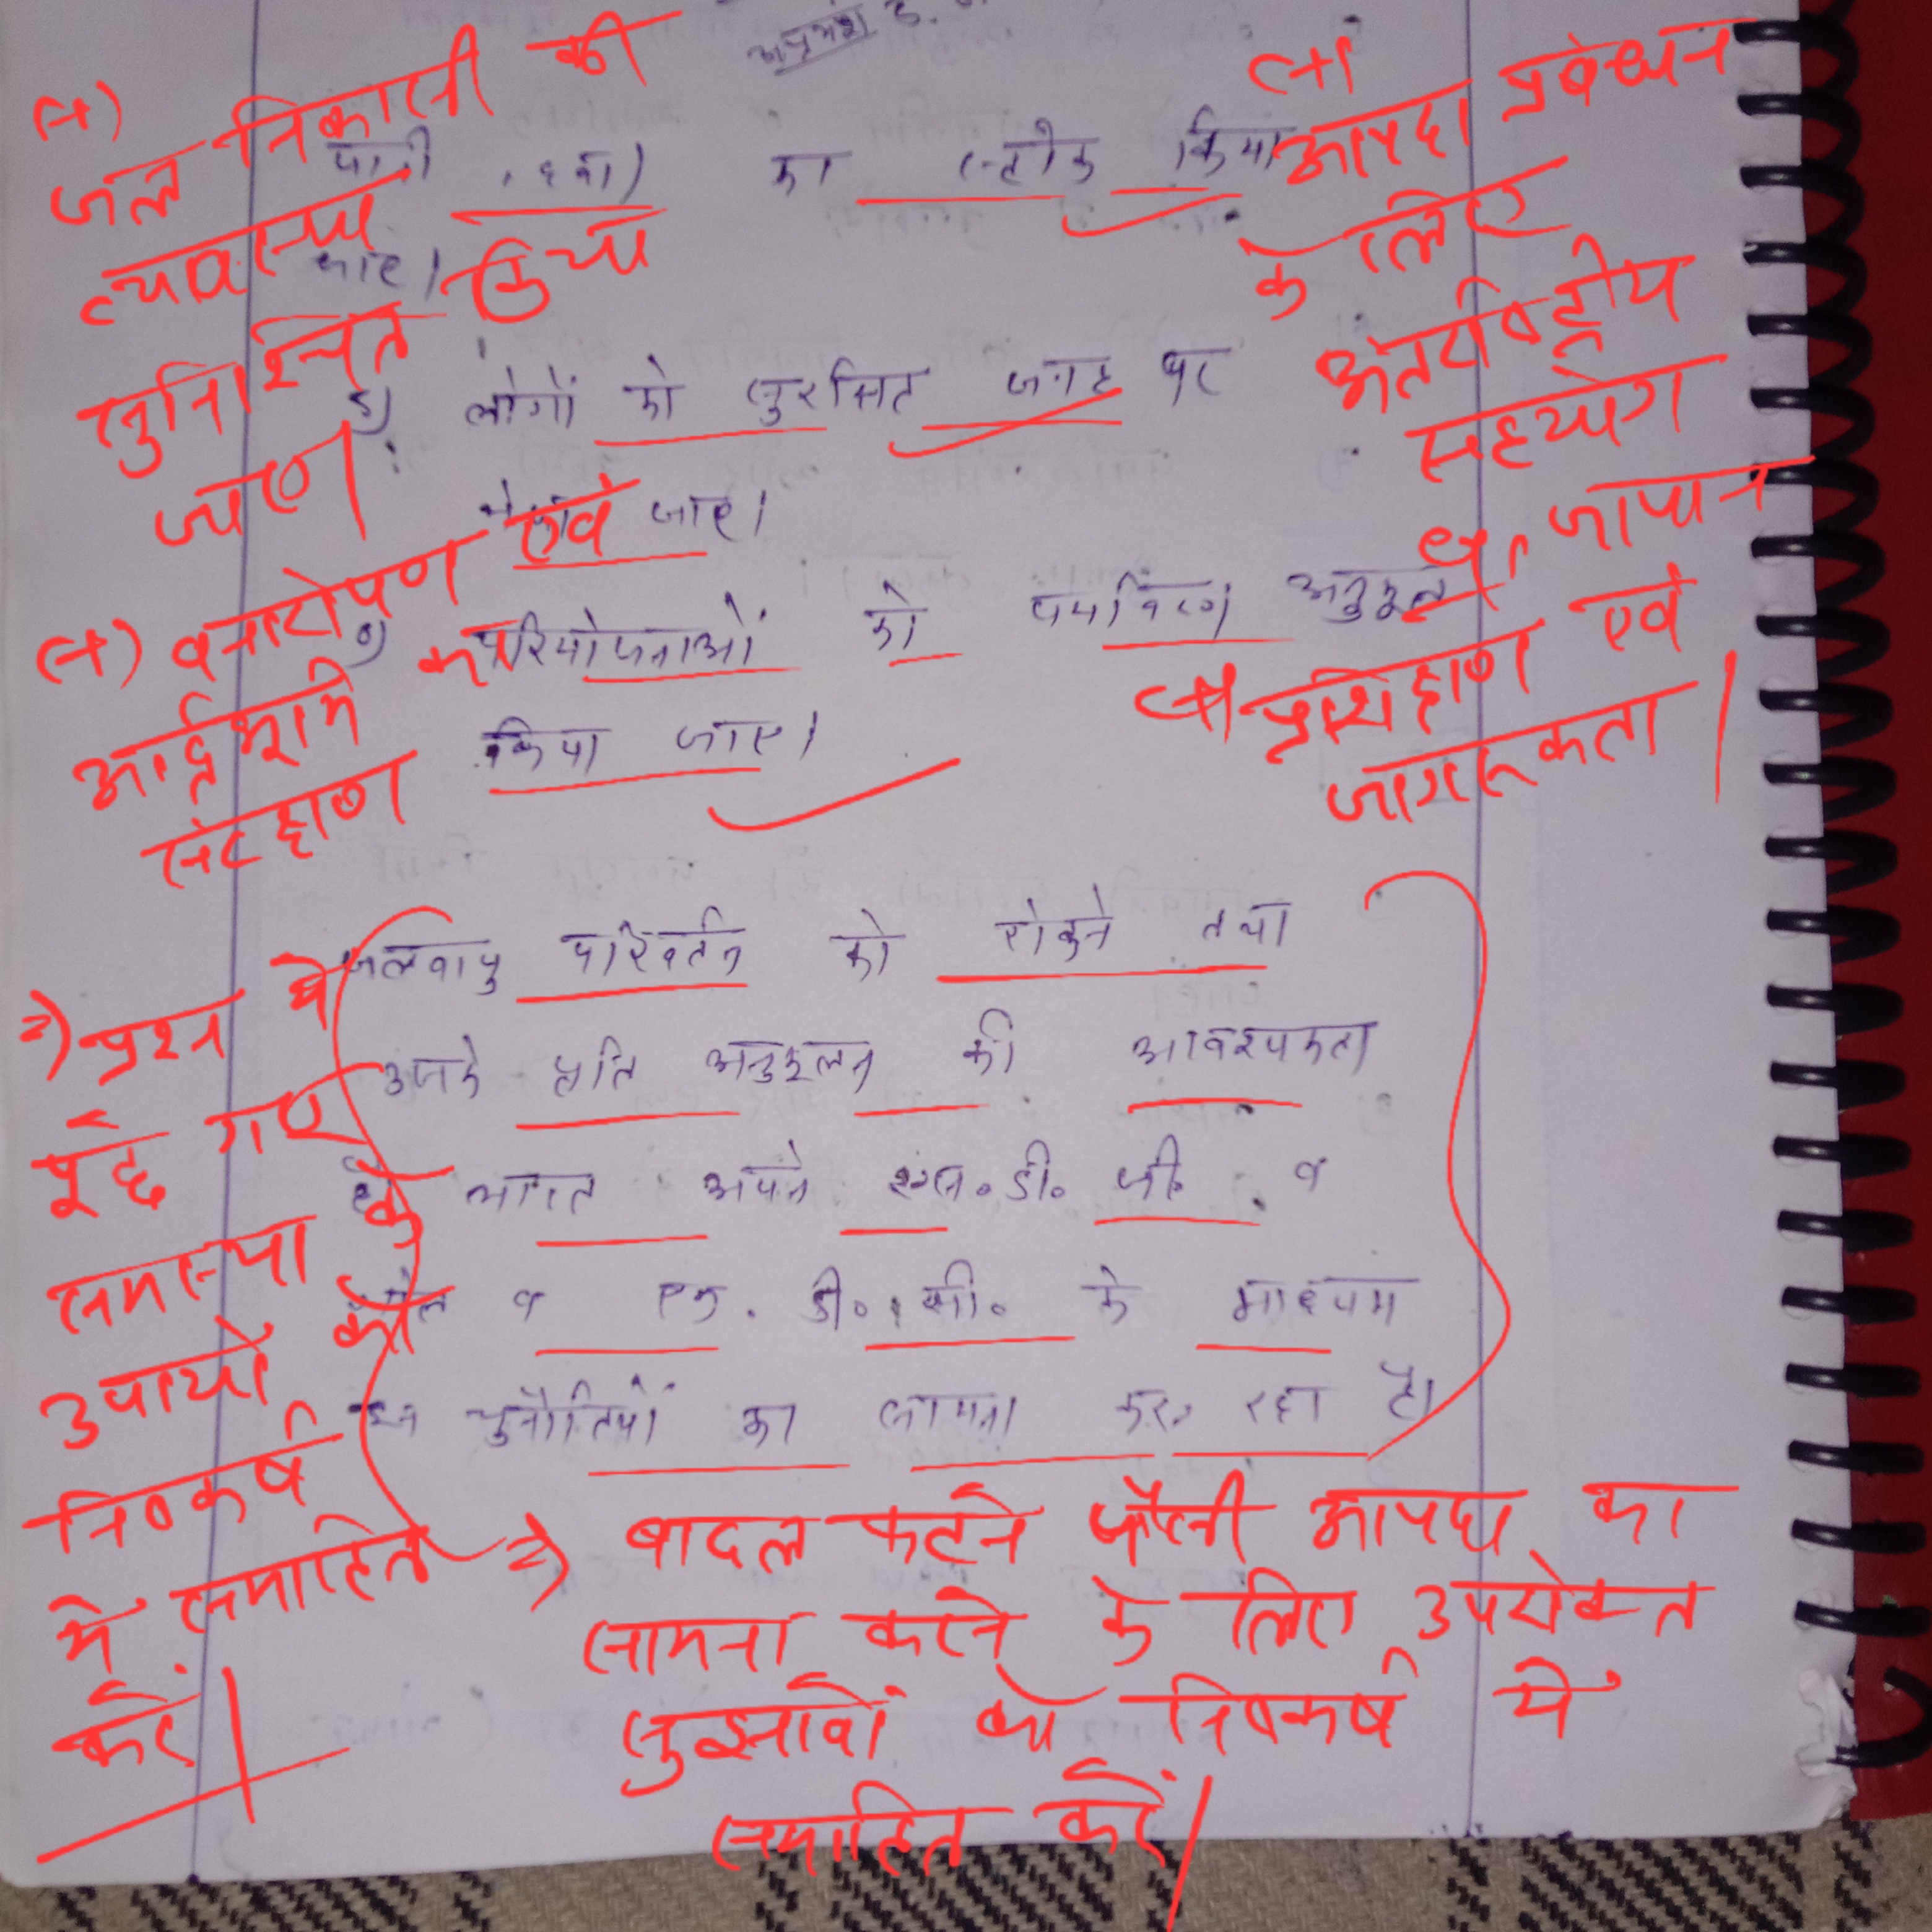 (+)
जल निकासी की
व्यवस्था
सुनिश्चित किया
जाए।
(+) वनारोपण एवं
आर्द्रभूमि का
संरक्षण
(+) आपदा प्रबंधन
के लिए
अंतर्राष्ट्रीय
सहयोग
जापान
(+) प्रशिक्षण एवं
जागरूकता।
पानी, दवा) का स्टोक किया
जाए।
लोगों को सुरक्षित जगह पर
जाए।
परियोजनाओं को पर्यावरण अनुकूल
किया जाए।
जलवायु परिवर्तन को रोकने तथा
उसके प्रति अनुकूलन की आवश्यकता
है भारत अपने एस.डी.जी. व
व एन.डी.सी. के माध्यम
चुनौतियों का सामना कर रहा है।
⇒) प्रश्न में
पूछे गए
समस्या के
उपायों को
निष्कर्ष
में समाहित
करें।
⇒) बादल फटने जैसी आपदा का
सामना करने के लिए उपरोक्त
सुझावों को निष्कर्ष में
समाहित करें।